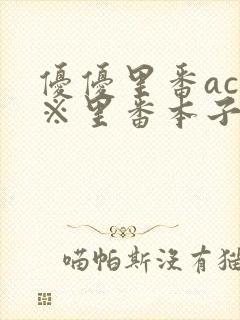 優優里番ac
※里番本子
喵帕斯沒有猫